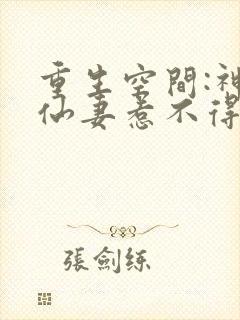 重生空間:神
仙妻惹不得
張劍練